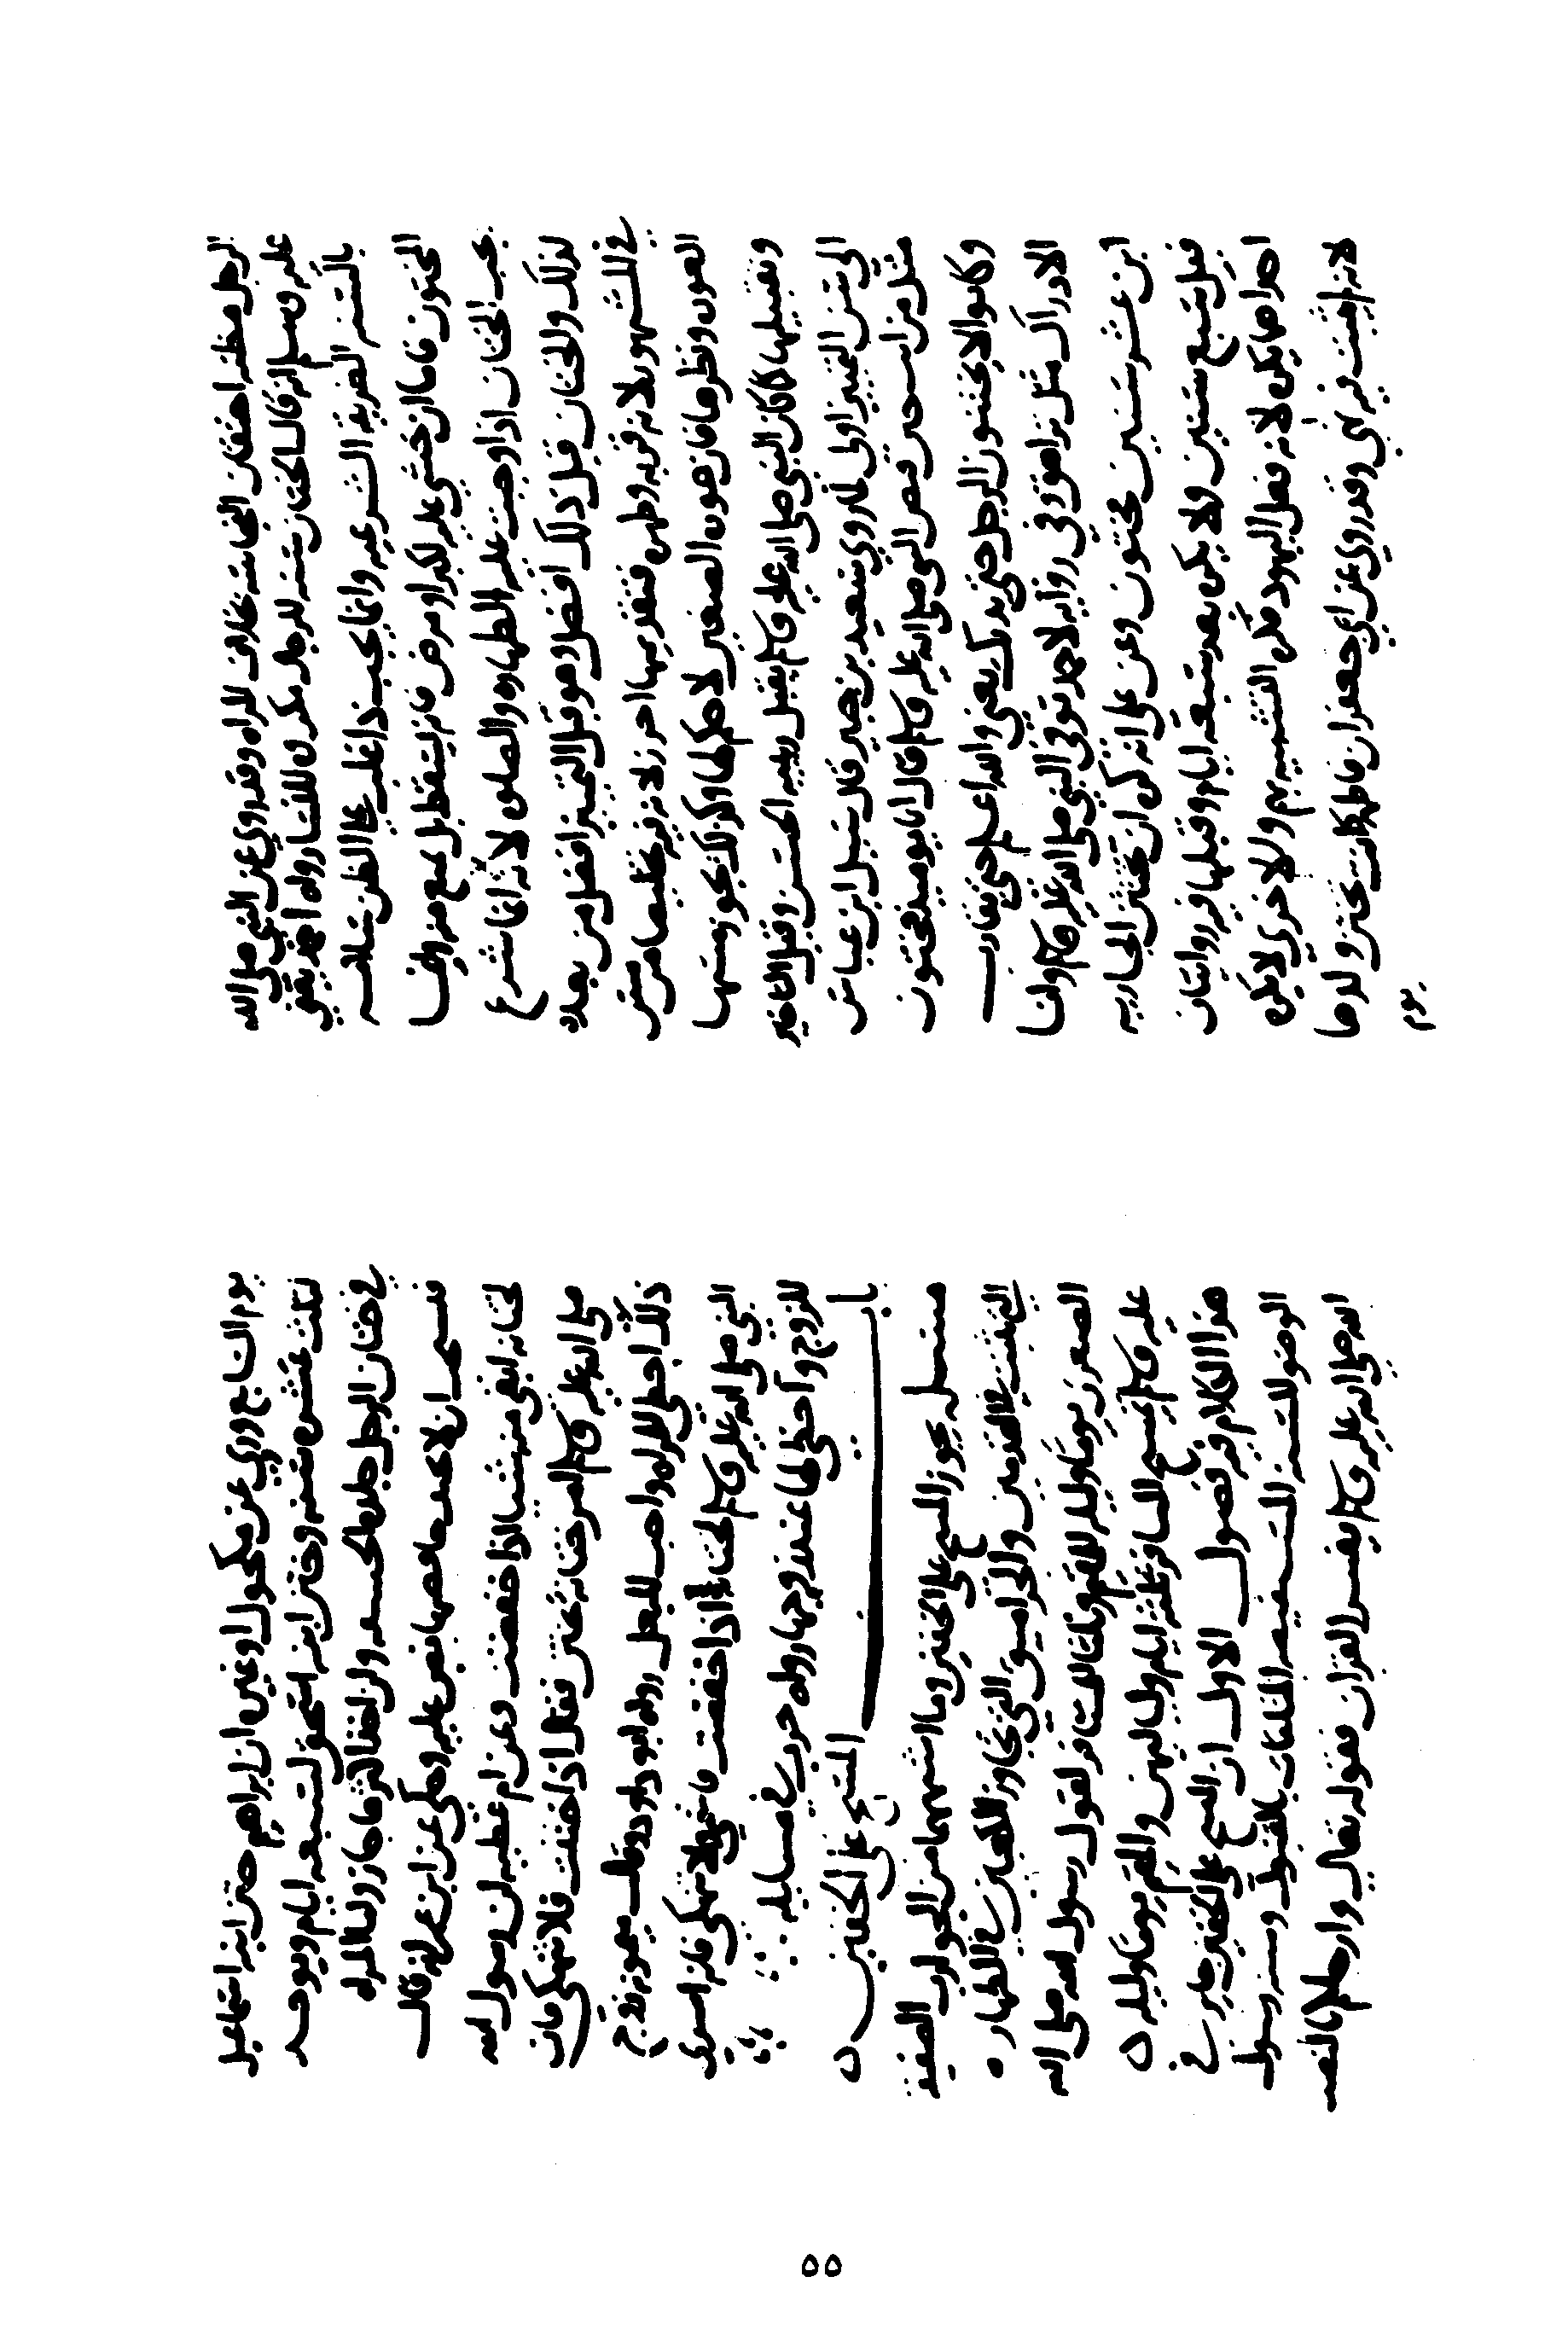 الرجل مظنه احتقان النجاسه بخلاف المراه وقد روي عن النبي صلى الله
عليه وسلم انه قال الختان سنه للرجال مكرمه للنساء رواه احمد يعني
بالسنه الطريقه الشرعيه وانما يجب اذا غلب على الظن سلامه
المختون فاما ان خشي عليه لكبر او مرض فانه يسقط بل يمنع منه وانما
يجب الختان اذا وجبت عليه الطهاره والصلوه لانه انما شرع
لذلك والختان قبل ذلك افضل وهو قبل التمييز افضل من بعده
في المشهور لانه قربه وطهره فتقديمها احرز لان فيه تخليصا من مس
العوره ونظرها فان عوره الصغير لا حكم لها ولذلك يجوز مسها
وتقبيلها كما كان النبي صلى الله عليه وسلم يقبل زبيبه الحسن وقيل التاخير
الى سن التمييز اولى لما روي سعيد بن جبير قال سئل ابن عباس
مثل من انت حين قبض النبي صلى الله عليه وسلم قال انا يوميذ مختون
وكانوا لا يختنون الرجل حتى يدرك يعني والله اعلم حتى يقارب
الادراك مثل تراهق وفي روايه لاحمد توفي النبي صلى الله عليه وسلم وانا
ابن عشر سنين مختون وعن علي انه كره ان تختن الجاريه
قبل سبع سنين ولا يكره بعد سبعه ايام وقبلها فيه روايتان
احداهما يكره لانه فعل اليهود فكره التشبه بهم والاخرى لا يكره
لانه لم يثبت فيه نهي وقد روي عن ابي جعفر ان فاطمه كانت تختن ولدها
يوم
يوم السابع وروي عن مكحول او غيره ان ابراهيم ختن ابنه اسحق لسبعه ايام
لثلث عشره سنه وختن ابنه اسحق لسبعه ايام ويوخذ
في ختان الرجل جلده الحشفه وان اخذ اكثرها جاز واما المراه
ان لا تحيف عليه وحكي عن ابن عمر انه قال
لختانه ابقي منه شيا اذا خفضت وعن ام عطيه ان رسول الله
صلى الله عليه وسلم امر ختانه تختن فقال اذا ختنت فلا تنهكي فان
ذلك احظى للمراه واحب للبعل رواه ابو داود وعن ميمونه زوج
النبي صلى الله عليه وسلم للختانه اذا خفضت فاشمي ولا تنهكي فانه اسرى
للزوج واحظى لها عند زوجها رواه حرب في مسايله
باب المسح على الخفين
مسله يجوز المسح على الخفين وما اشبههما من الجوارب الصفيقه
التي تثبت في القدمين والجراميق التي تجاوز الكعبين في الطهاره
الصغرى يوما وليله للمقيم وثلاثا للمسافر لقول رسول الله صلى الله
عليه وسلم يمسح المسافر ثلثه ايام ولياليهن والمقيم يوما وليله
هذا الكلام فيه فصول الاول ان المسح على الخفين جايز في
الوضوء للسنه المستفيضه المتلقاه بالقبول وسنه رسول
الله صلى الله عليه وسلم تفسر القران فقوله تعالى وارجلكم بالنصب
٥٥